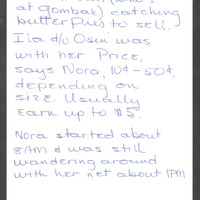 at Gombak) catching
butterflies to sell.
Ila d/o Osin was
with her. Price,
says Nora, 10¢-50¢,
depending on
size. Usually
earn up to $5.
Nora started about
8AM & was still
wandering around
with her net about 1PM